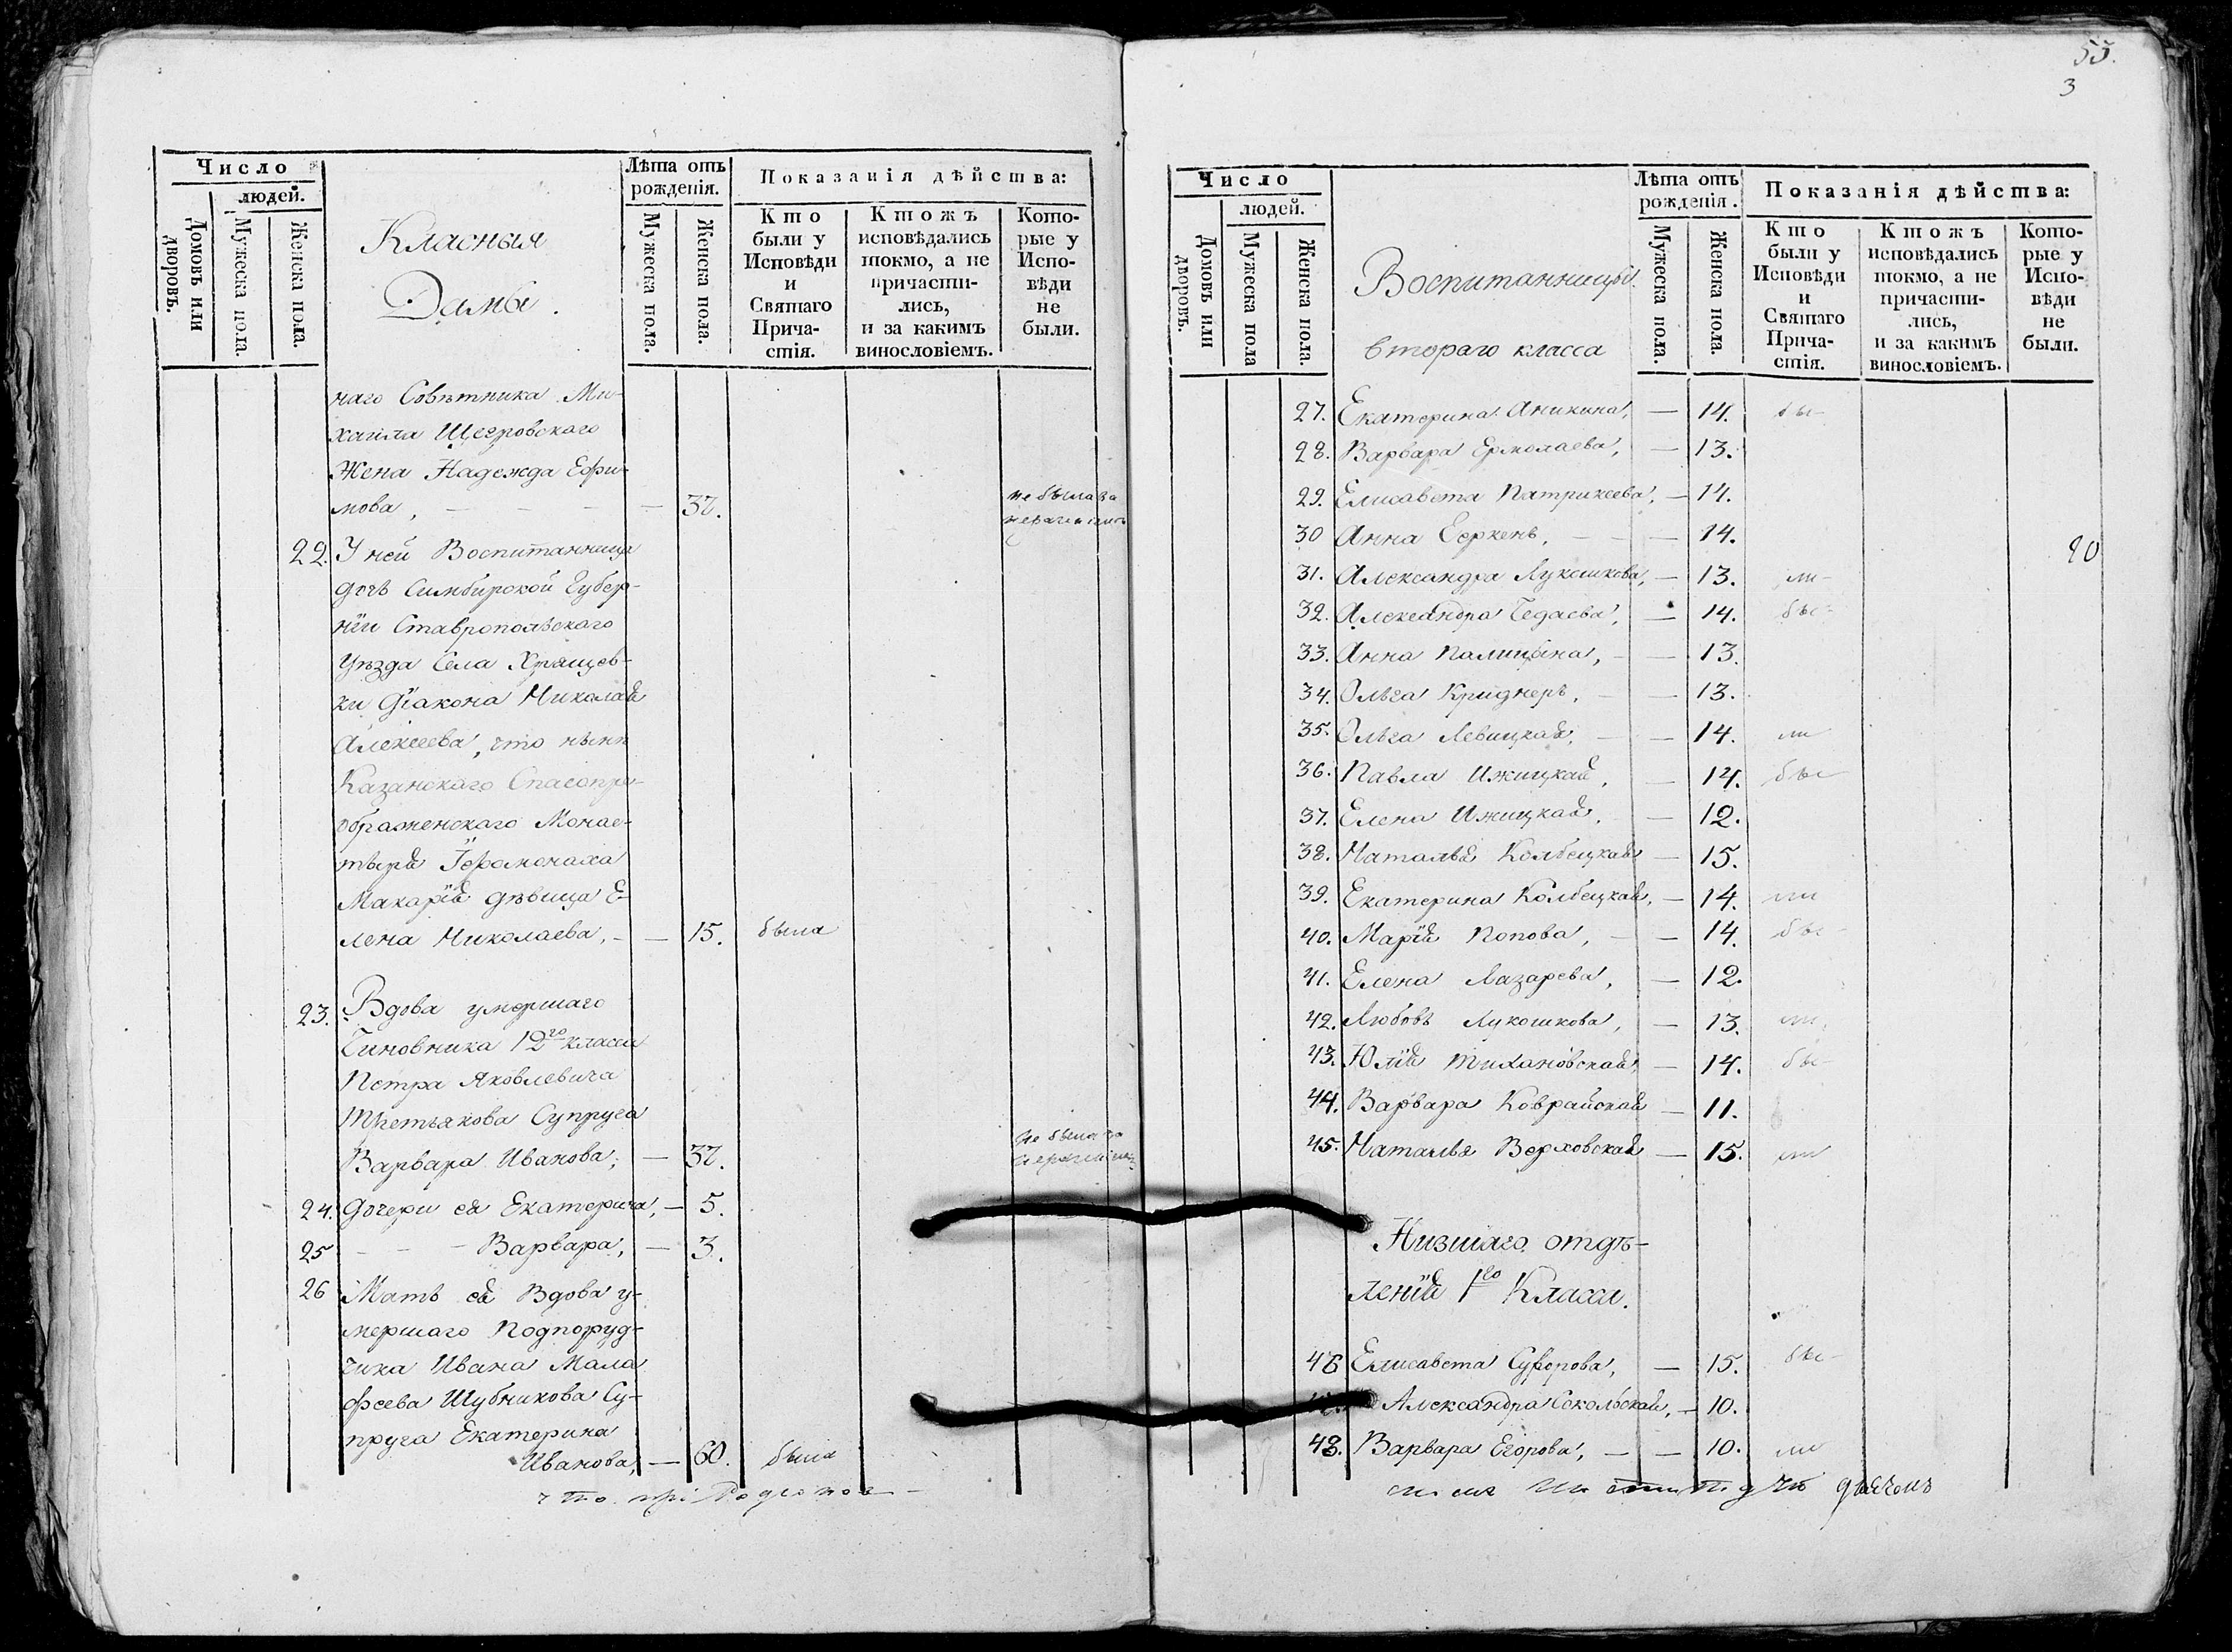 Число
людей.
Домовъ или дворовъ.
Мужеска пола.
Женска пола.
Класныя
Дамы.
Лѣта отъ рожденія.
Мужеска пола.
Женска пола.
Показанія дѣйства:
Кто были у Исповѣди и Святаго Причастія.
Ктожъ исповѣдались токмо, а не причастились, и за какимъ винословіемъ.
Которые у Исповѣди не были.
наго Совѣтника Ми-
хаила Щегровскаго
Жена Надежда Ефи-
мова, — 37. не была за
22. У ней Воспитанница
дочь Симбирской Губер-
нїи Ставропольскаго
Уѣзда Села Хрящев-
ки Дїакона Николая
Алексеева, что нынѣ
Казанскаго Спасопре-
ображенскаго Монас-
тыря Їеромонаха
Макарїя дѣвица Е-
лена Николаева, — 15. была
23. Вдова умершаго
Чиновника 12го класса
Петра Яковлевича
Третьякова Супруга
Варвара Иванова, — 37. не была за
24. Дочери ея Екатерина, — 5.
25 — — Варвара, — 3.
26 Мать ея Вдова у-
мершаго Подпоруд-
чика Ивана Мала
феева Шубникова Су-
пруга Екатерина
Иванова, — 60. была
55.
3
Число
людей.
Домовъ или дворовъ.
Мужеска пола
Женска пола.
Воспитанницы
втораго класса
Лѣта отъ рожденія.
Мужеска пола.
Женска пола.
Показанія дѣйства:
Кто были у Исповѣди и Святаго Причастія.
Ктожъ исповѣдались токмо, а не причастились, и за какимъ винословіемъ.
Которые у Исповѣди не были.
27. Екатерина Аникина, — 14. бы-
28. Варвара Ермолаева, — 13.
29. Елисавета Патрикеева, — 14.
30 Анна Геркенъ, — 14.
20
31. Александра Лукошкова, — 13. ли-
32. Александра Чедаева, — 14. бы-
33. Анна Палицына, — 13.
34. Ольга Криднеръ, — 13.
35. Ольга Левицкая, — 14. ли
36. Павла Ижицкая, — 14. бы-
37. Елена Ижицкая, — 12.
38. Наталья Колбецкая — 15.
39. Екатерина Колбецкая, — 14. ли
40. Марїя Попова, — 14. бы-
41. Елена Лазарева, — 12.
42. Любовь Лукошкова, — 13. ли
43. Юлїя Тихановская, — 14. бы-
44. Варвара Коврайская — 11.
45. Наталья Верховская — 15. ли
Низшаго отдѣ-
ленїя 1го Класса.
46 Елисавета Суфорова, — 15. бы-
Александра Сокольская, — 10.
48. Варвара Егорова, — 10. ли